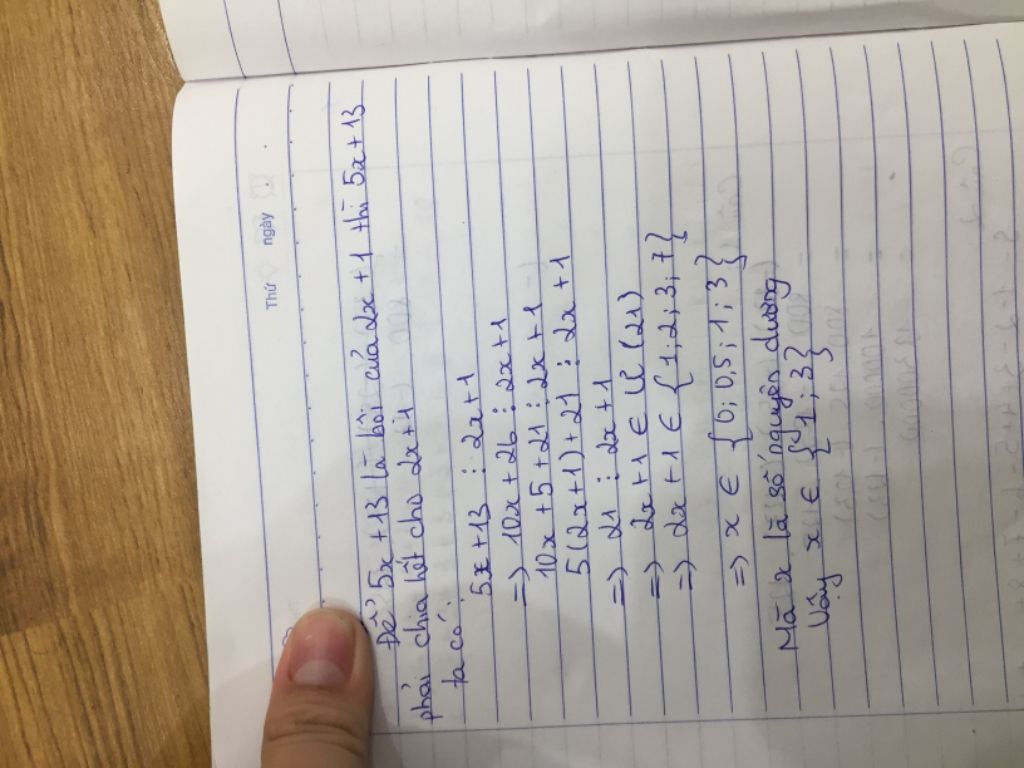 Thứ ngày
Để 5x + 13 là bội của 2x + 1 thì 5x + 13
phải chia hết cho 2x + 1
ta có:
5x + 13 ⋮ 2x + 1
=> 10x + 26 ⋮ 2x + 1
10x + 5 + 21 ⋮ 2x + 1
5(2x + 1) + 21 ⋮ 2x + 1
=> 21 ⋮ 2x + 1
=> 2x + 1 ∈ Ư (21)
=> 2x + 1 ∈ {1; 2; 3; 7}
=> x ∈ {0; 0,5; 1; 3}
Mà x là số nguyên dương
Vậy x ∈ {1; 3}